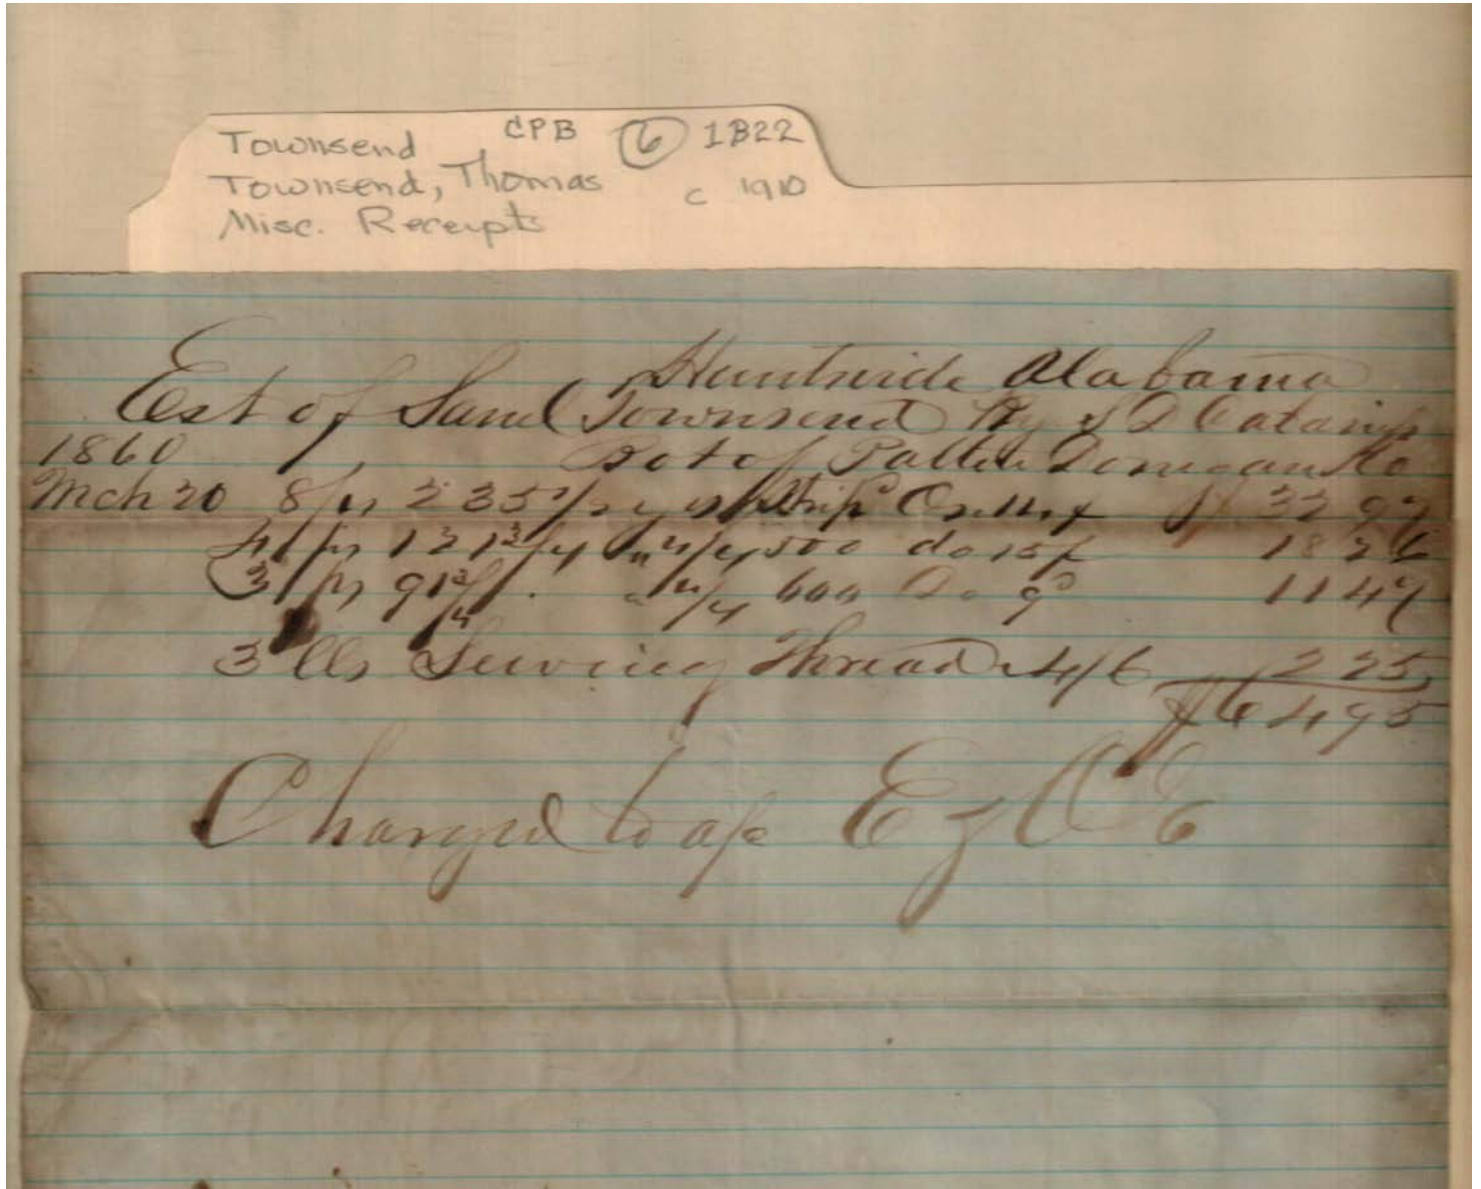 Townsend CPB 6 1B22
Townsend, Thomas c 1910
Misc. Receipts
Huntsville Alabama
Est of Saml Townsend By S D Cabaniss
1860 Bot of Patton Donegan & Co
Mch 20 8 ps 235 1/2 yds Strip 32 97
4 ps 121 3/4 " 4/4 500 do 15 18 26
3 ps 91 3/4 " 4/4 600 Do 11 47
3 lbs Sewing Thread 6/ 2 25
$64 95
Charged to a/c